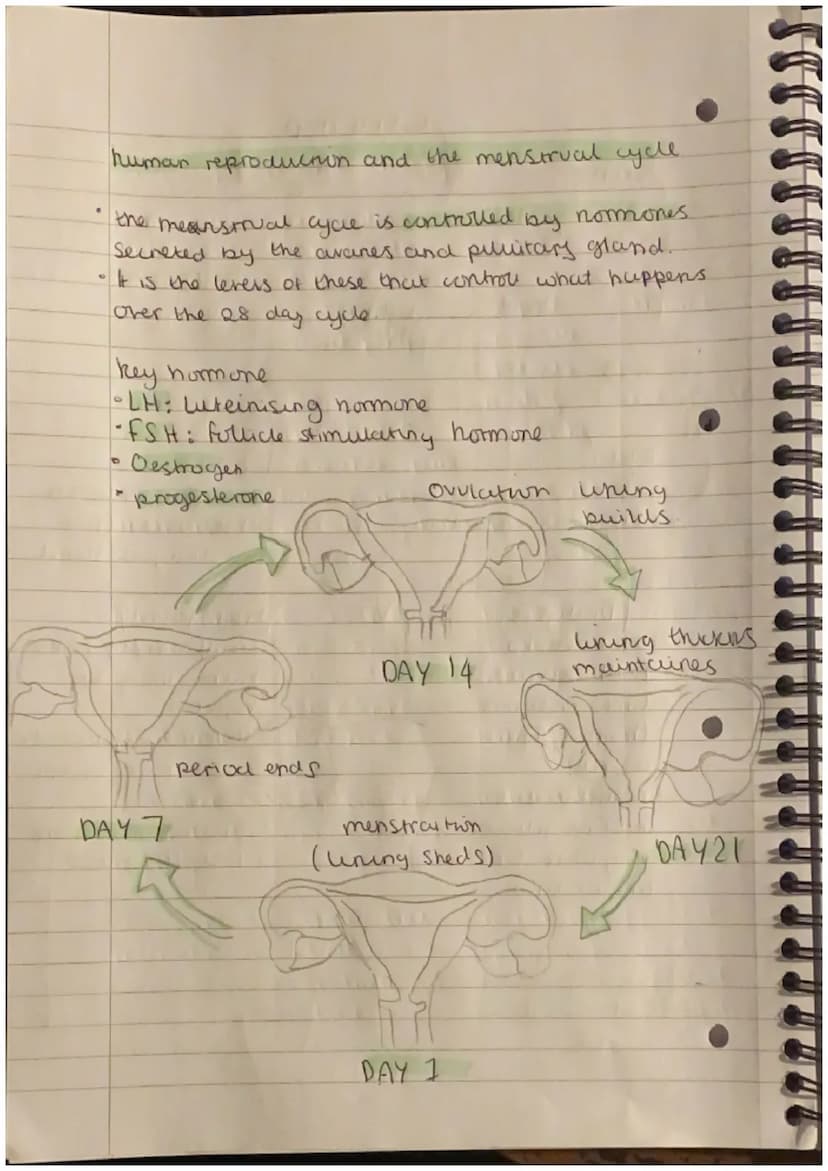 human reproduction and the menstrual cycle
• the meanstrual cycle is controlled by hormones
secreted by the ovaries and pituitary gland.
• It is the levels of these that control what happens
over the 28 day cycle
key hormone
• LH: Luteinising hormone
• FSH: follicle stimulating hormone
• Oestrogen
• progesterone
Ovulation lining
builds
DAY 14
lining thickens
maintaines
period ends
DAY 7
menstration
(lining sheds)
DAY 21
DAY 1